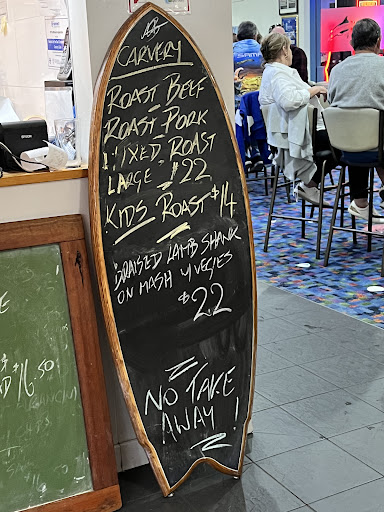 CARVERY
ROAST BEEF
ROAST PORK
MIXED ROAST
LARGE $22
KIDS ROAST $14
BRAISED LAMB SHANK
ON MASH 4 VEGIES
$22
NO TAKE
AWAY !
$16.50
EPSON